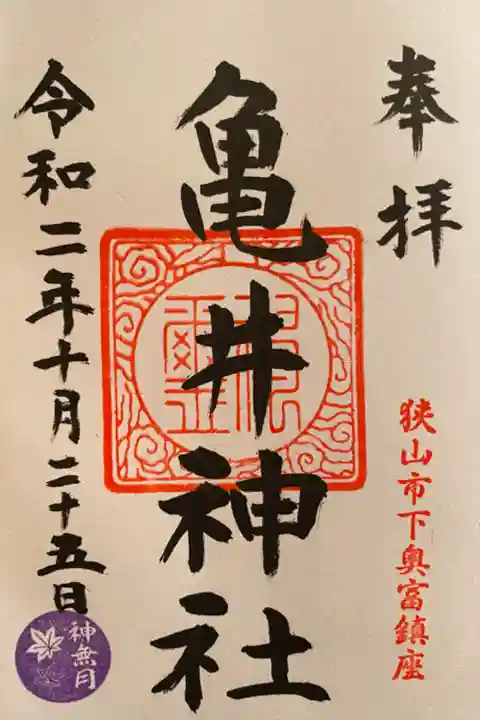 奉拝
狭山市下奥富鎮座
亀井神社
令和二年十月二十五日
神無月